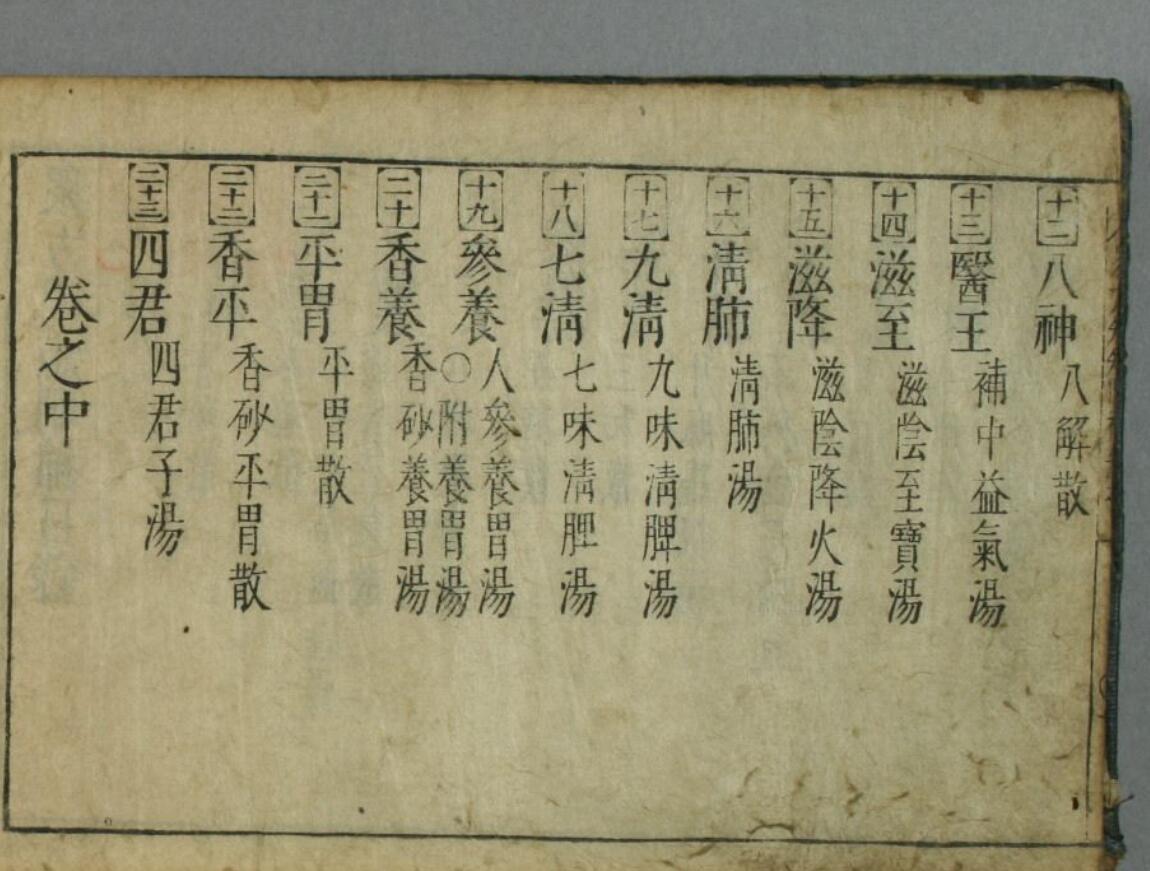 十二 八神 八解散
十三 醫王 補中益氣湯
十四 滋至 滋陰至寶湯
十五 滋降 滋陰降火湯
十六 清肺 清肺湯
十七 九清 九味清脾湯
十八 七清 七味清脾湯
十九 參養 人參養胃湯
〇附養胃湯
二十 香養 香砂養胃湯
二十一 平胃 平胃散
二十二 香平 香砂平胃散
二十三 四君 四君子湯
卷之中